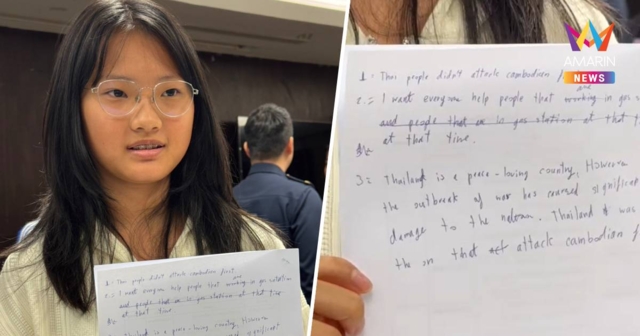 AMARIN
NEWS
1: Thai people didn't attack cambodian
2: I want everyone help people that are working in gas
and people that in gas station at that
at that time
3: Thailand is a peace-loving country, However
the outbreak of war has caused significant
damage to the nation. Thailand was
the on that attack cambodian
1: Thai people didn't attack cambodian first
2: I want everyone help people that are working in gas station
and people that in gas station at that time
at that time
3: Thailand is a peace-loving country, However
the outbreak of war has caused significant